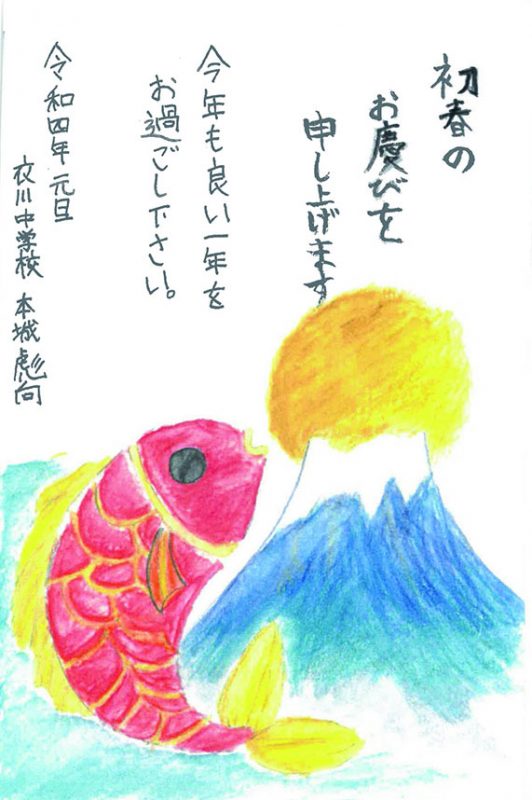 初春の
お慶びを
申し上げます
今年も良い一年を
お過ごし下さい。
令和四年元旦
衣川中学校 本城彪向